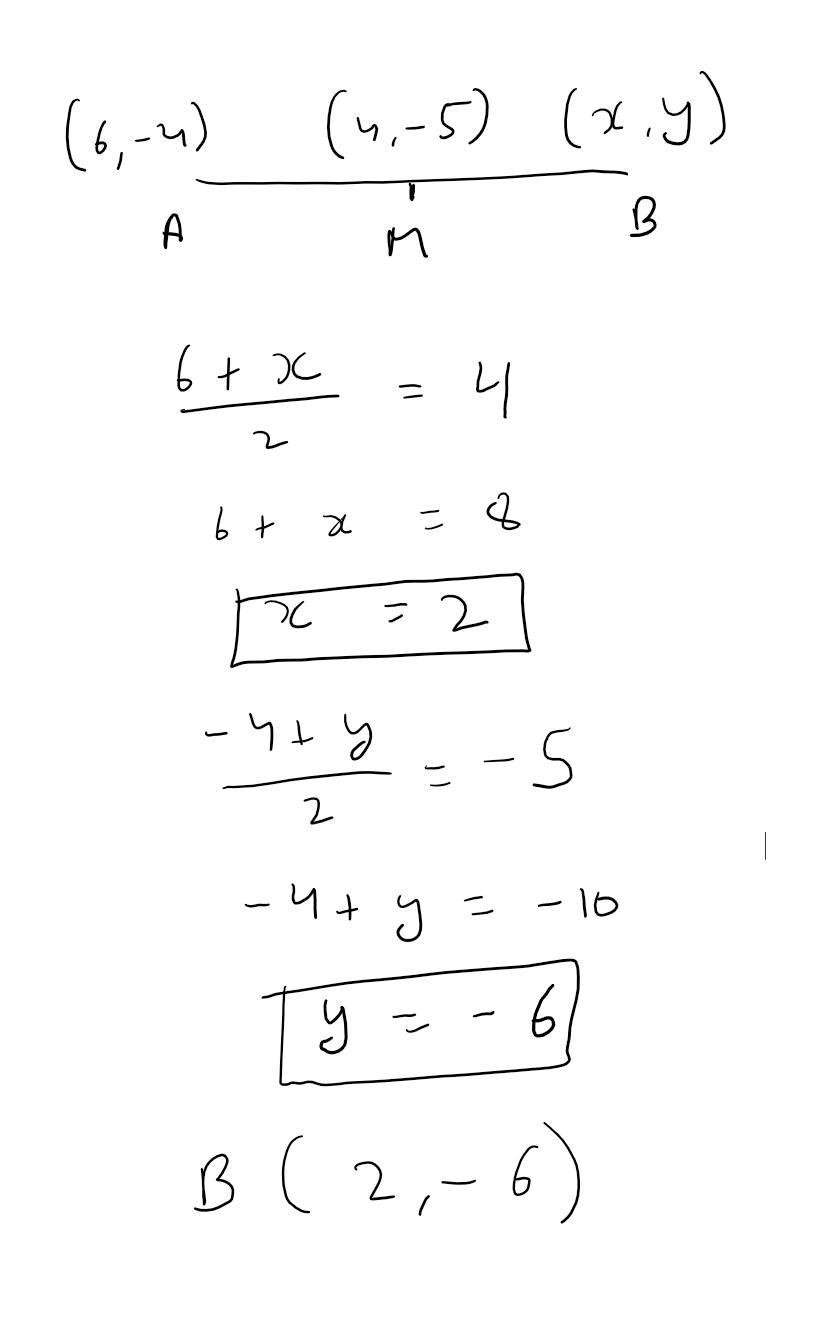 (6,-4) (4,-5) (x,y)
A M B
6 + x
2
= 4
6 + x = 8
x = 2
-4 + y
2
= -5
-4 + y = -10
y = -6
B (2,-6)